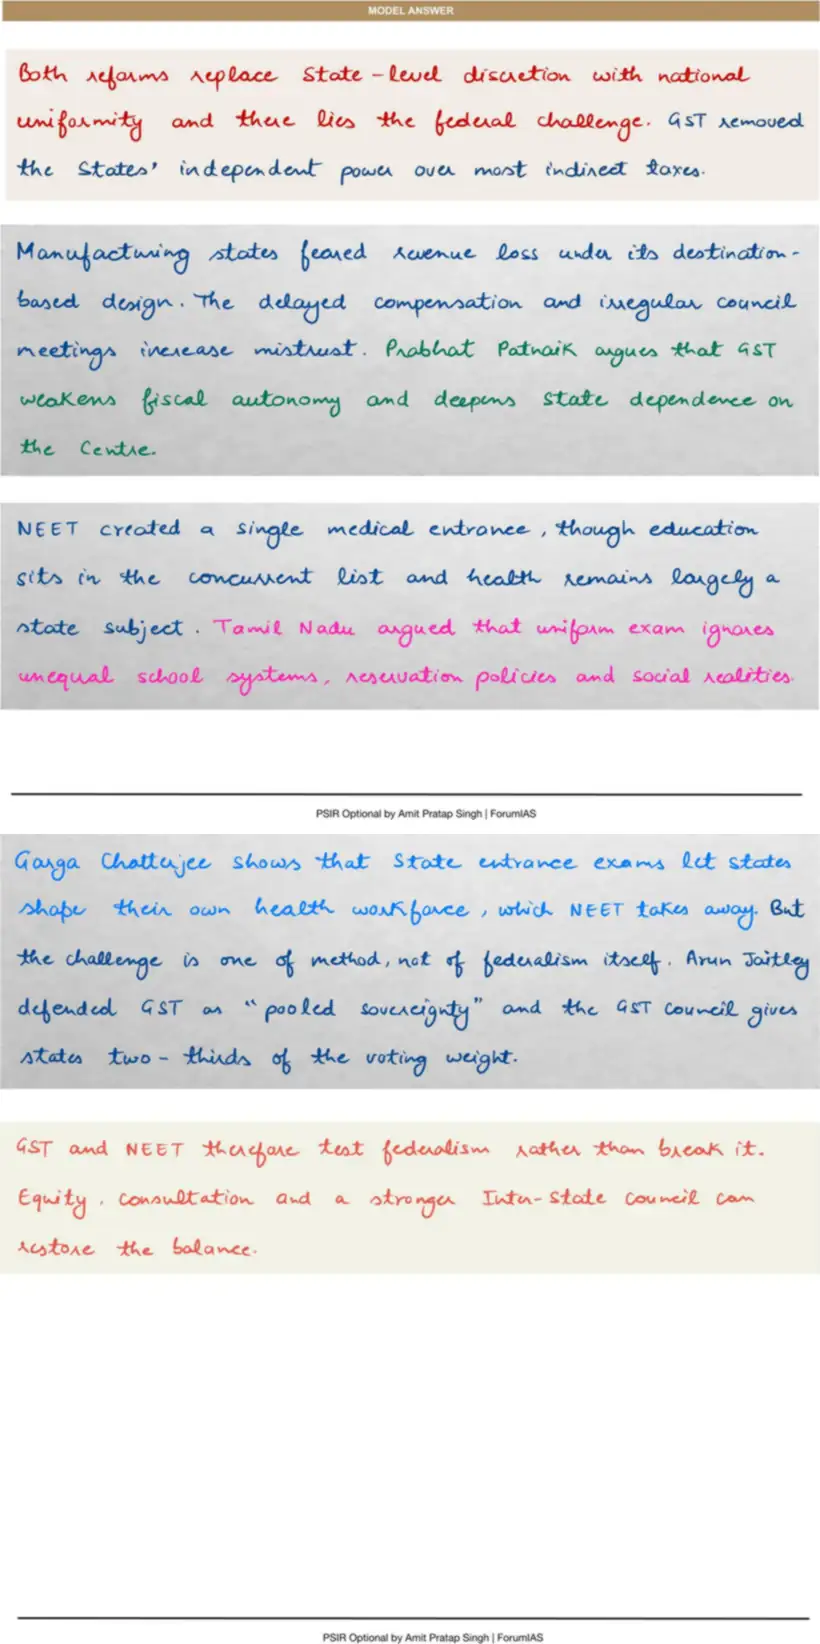 MODEL ANSWER
Both reforms replace State-level discretion with national
uniformity and there lies the federal challenge. GST removed
the States' independent power over most indirect taxes.
Manufacturing states feared revenue loss under its destination-
based design. The delayed compensation and irregular council
meetings increase mistrust. Prabhat Patnaik argues that GST
weakens fiscal autonomy and deepens State dependence on
the Centre.
NEET created a single medical entrance, though education
sits in the concurrent list and health remains largely a
state subject. Tamil Nadu argued that uniform exam ignores
unequal school systems, reservation policies and social realities.
PSIR Optional by Amit Pratap Singh | ForumIAS
Garga Chatterjee shows that State entrance exams let states
shape their own health workforce, which NEET takes away. But
the challenge is one of method, not of federalism itself. Arun Jaitley
defended GST as "pooled sovereignty" and the GST Council gives
states two-thirds of the voting weight.
GST and NEET therefore test federalism rather than break it.
Equity, consultation and a stronger Inter-State Council can
restore the balance.
PSIR Optional by Amit Pratap Singh | ForumIAS